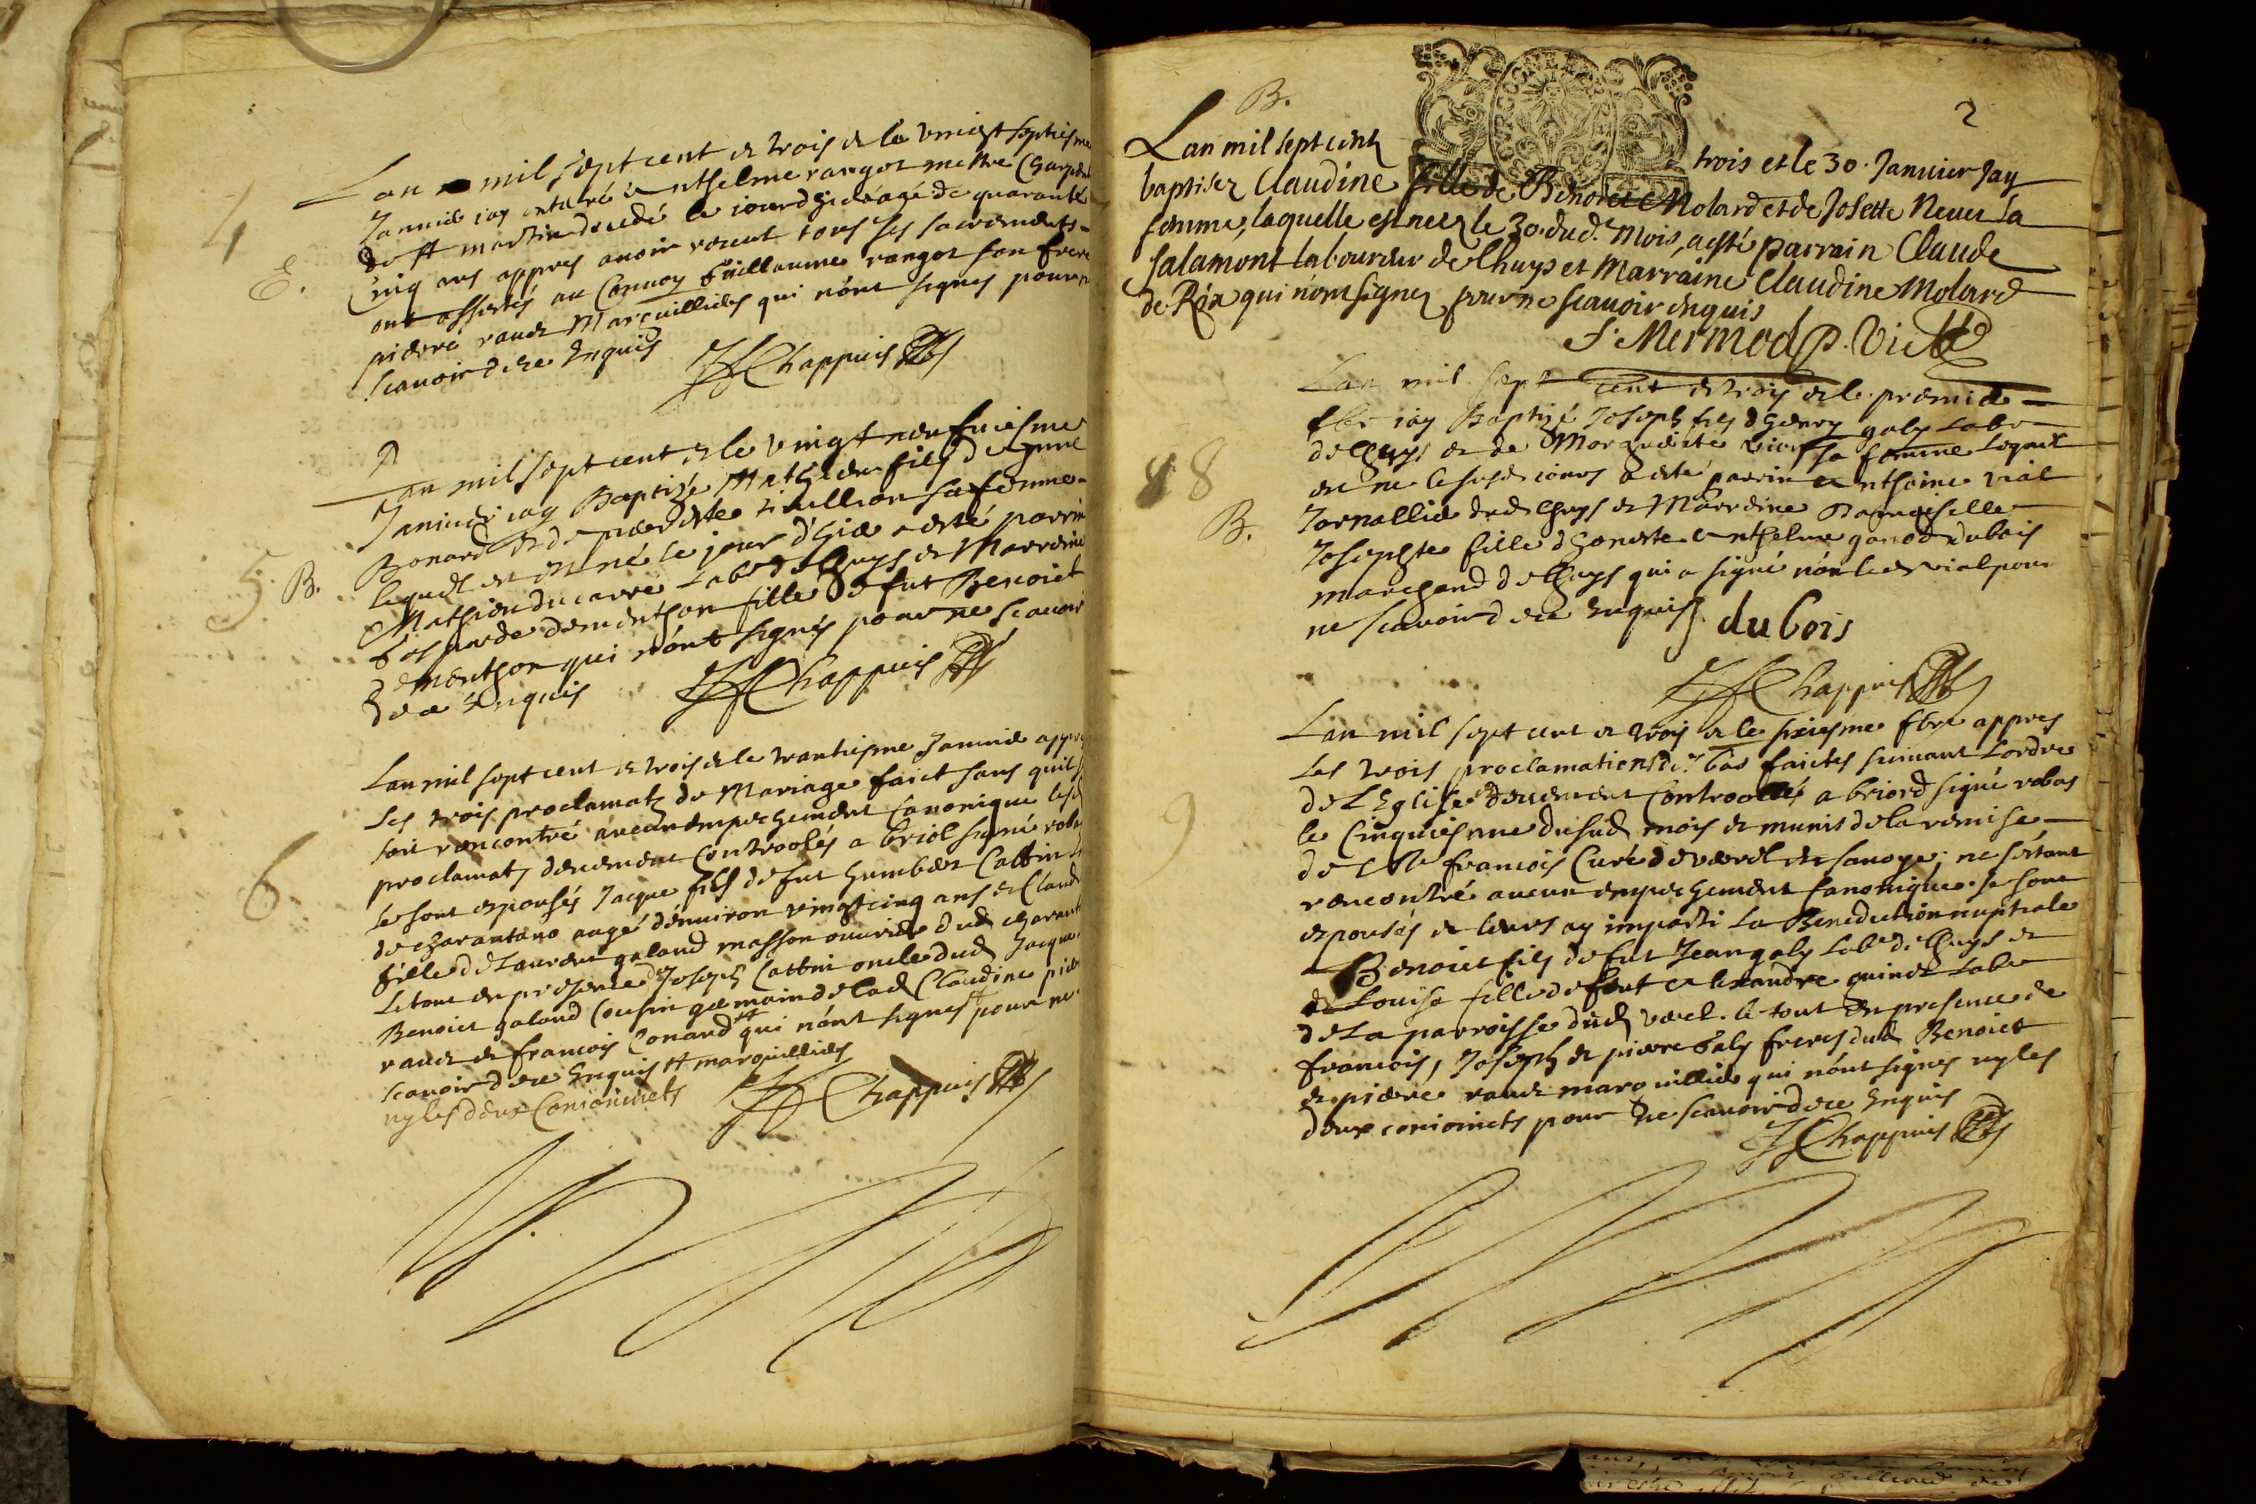 4
E.
Lan mil sept cent et trois et le vingt septiesme
Janvier iay enterré Anthelme rangot maistre Charp
de St martin decedé le iourd'hier agé de quarante
Cinq ans appres auoir receut tous ses sacrements
ont assistés au Conuoy Guillaume rangot son frere
pierre Marguilliers qui n'ont signes pour n
scauoir dere Enquis
Chappuis
5.
B.
Lan mil sept cent et le vingt neufuiesme
Januier iay Baptizé Mathieu fils de
Bonard et de sa femme
lequel est né le jour d'hier a esté parrin
Mathieu ducarre Labr de lhuys et Marreine
demonthon fille de fut Benoict
demonthon qui n'ont signés pour ne scauoir
dere Enquis
Chappuis
6
Lan mil sept cent et trois et le trantiesme Januier appres
les trois proclamatz de Mariage faict sans quil
soit rencontré aucun empechement Canonique les
proclamatz deuement Controolés a briol signé roba
se sont espousés Jacque fils de fut humbert Cattin
de charantano aagé d'enuiron vingt cinq ans et Claud
fille de Laurent galaud masson ouurier dud charant
Le tout en presence de Joseph Cattin oncle dud Jacque
Benoict galaud Cousin germain de lad Claudine pier
et francois Conand qui n'ont signes pour ne
scauoir dere Enquis marguilliers
ny les deux Conioincts
Chappuis
2
B.
Lan mil sept centz trois et le 30. Januier Jay
baptisez Claudine fille de Benoict Molard et de Josette Neuer sa
femme, laquelle est neez le 30. dud. Mois, a esté parrain Claude
Salamont laboureur de lhuys et Marraine Claudine Molard
de Rix qui n'ont signez pour ne scauoir enquis
F. Mermod p. Vic
8 8
B.
Lan mil sept cent et trois et le premier
fbr iay Baptizé Joseph fils d'henry galy Labr
de lhuys et de Marguerite sa femme lequel
est ne le susd iours a esté parrin Anthoine vial
Jornallier dud lhuys et Marreine Damoiselle
Josephte fille d'honeste Anthelme ganod dubois
marchand de lhuys qui a signé non led vial pour
ne scauoir dere Enquis
du bois
Chappuis
9
Lan mil sept cent et trois et le sixiesme fbre appres
Les trois proclamations de bas faictes suiuant Lordre
de L'Eglise deuement Controolés a briord signé robas
le Cinquiesme du sud mois et munis de la remise
de Mre francois Curé de verel en sauoye; ne s'estant
rencontré aucun empechement Canonique se sont
espousés et leurs ay imparti La Benediction nuptiale
Benoict fils de fut Jean galy Labr de lhuys et
et Louise fille de fut Alexandre guinet Labr
de La parroisse dud verel. le tout en presence de
francois, Joseph et pierre Galy freres dud Benoict
et pierre marguillier qui n'ont signes ny les
deux conioincts pour ne scauoir dere Enquis
Chappuis